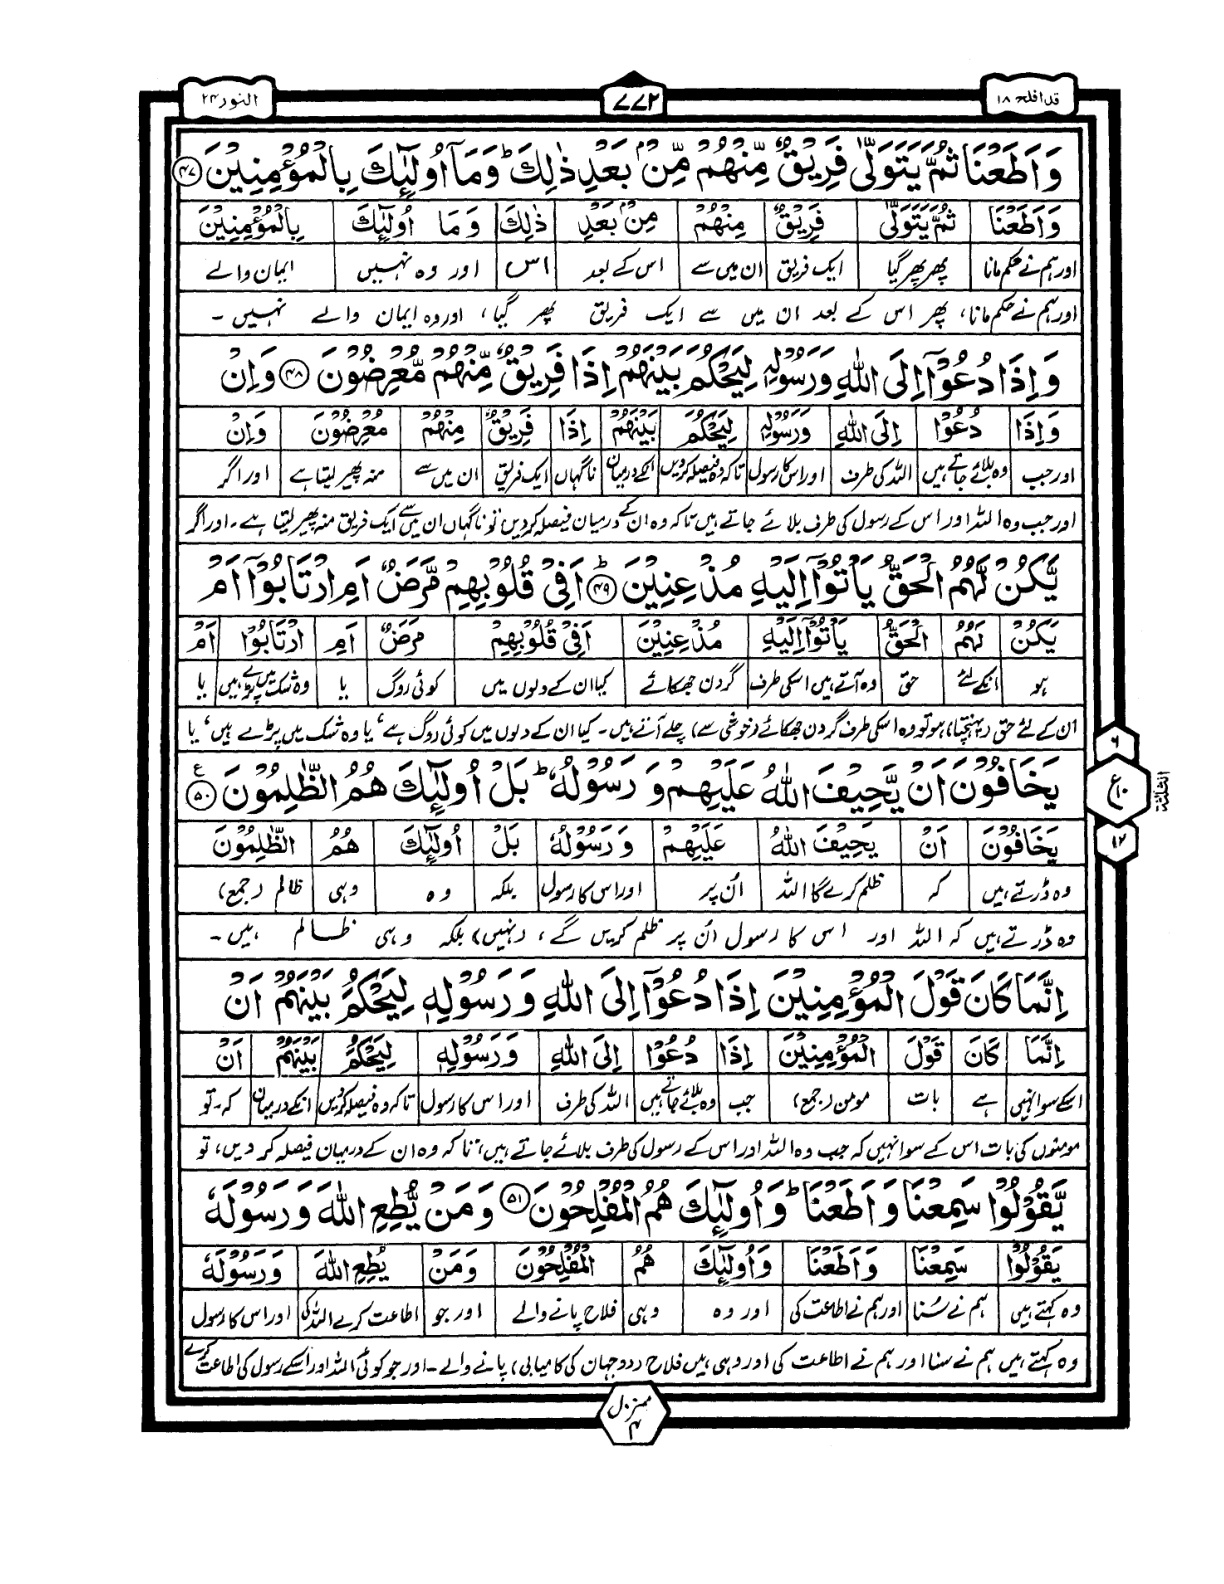 قد افلح ۱۸
۷۷۲
النور ۲۴
وَاَطَعْنَا ثُمَّ یَتَوَلّٰی فَرِیْقٌ مِّنْهُمْ مِّنْۢ بَعْدِ ذٰلِكَ ؕ وَمَاۤ اُولٰٓئِكَ بِالْمُؤْمِنِیْنَ ﴿۴۷﴾
وَاَطَعْنَا ثُمَّ یَتَوَلّٰی فَرِیْقٌ مِنْهُمْ مِنْۢ بَعْدِ ذٰلِكَ وَمَا اُولٰٓئِكَ بِالْمُؤْمِنِیْنَ
اور ہم نے حکم مانا پھر پھر گیا ایک فریق ان میں سے اس کے بعد اس اور وہ نہیں ایمان والے
اور ہم نے حکم مانا، پھر اس کے بعد ان میں سے ایک فریق پھر گیا، اور وہ ایمان والے نہیں۔
وَاِذَا دُعُوْۤا اِلَی اللّٰهِ وَرَسُوْلِهٖ لِیَحْكُمَ بَیْنَهُمْ اِذَا فَرِیْقٌ مِّنْهُمْ مُّعْرِضُوْنَ ﴿۴۸﴾ وَاِنْ
وَاِذَا دُعُوْۤا اِلَی اللّٰهِ وَرَسُوْلِهٖ لِیَحْكُمَ بَیْنَهُمْ اِذَا فَرِیْقٌ مِنْهُمْ مُعْرِضُوْنَ وَاِنْ
اور جب وہ بلائے جاتے ہیں اللہ کی طرف اور اس کا رسول تاکہ وہ فیصلہ کر دیں انکے درمیان ناگہاں ایک فریق ان میں سے منہ پھیر لیتا ہے اور اگر
اور جب وہ اللہ اور اس کے رسول کی طرف بلائے جاتے ہیں تاکہ وہ ان کے درمیان فیصلہ کر دیں تو ناگہاں ان میں سے ایک فریق منہ پھیر لیتا ہے۔ اور اگر
یَّكُنْ لَّهُمُ الْحَقُّ یَاْتُوْۤا اِلَیْهِ مُذْعِنِیْنَ ﴿۴۹﴾ؕ اَفِیْ قُلُوْبِهِمْ مَّرَضٌ اَمِ ارْتَابُوْۤا اَمْ
یَكُنْ لَهُمُ الْحَقُّ یَاْتُوْۤا اِلَیْهِ مُذْعِنِیْنَ اَفِیْ قُلُوْبِهِمْ مَرَضٌ اَمِ ارْتَابُوْۤا اَمْ
ہو انکے لئے حق وہ آتے ہیں اسکی طرف گردن جھکائے کیا ان کے دلوں میں کوئی روگ یا وہ شک میں پڑے ہیں یا
ان کے لئے حق (پہنچتا) ہو تو وہ اسکی طرف گردن جھکائے (خوشی سے) چلے آتے ہیں۔ کیا ان کے دلوں میں کوئی روگ ہے، یا وہ شک میں پڑے ہیں، یا
۶
ع ۱۰
۱۲
الثلثة
یَخَافُوْنَ اَنْ یَّحِیْفَ اللّٰهُ عَلَیْهِمْ وَ رَسُوْلُهٗ ؕ بَلْ اُولٰٓئِكَ هُمُ الظّٰلِمُوْنَ ﴿۵۰﴾ ع
یَخَافُوْنَ اَنْ یَحِیْفَ اللّٰهُ عَلَیْهِمْ وَ رَسُوْلُهٗ بَلْ اُولٰٓئِكَ هُمُ الظّٰلِمُوْنَ
وہ ڈرتے ہیں کہ ظلم کرے گا اللہ اُن پر اور اس کا رسول بلکہ وہ وہی ظالم (جمع)
وہ ڈرتے ہیں کہ اللہ اور اس کا رسول اُن پر ظلم کریں گے، (نہیں) بلکہ وہی ظالم ہیں۔
اِنَّمَا كَانَ قَوْلَ الْمُؤْمِنِیْنَ اِذَا دُعُوْۤا اِلَی اللّٰهِ وَ رَسُوْلِهٖ لِیَحْكُمَ بَیْنَهُمْ اَنْ
اِنَّمَا كَانَ قَوْلَ الْمُؤْمِنِیْنَ اِذَا دُعُوْۤا اِلَی اللّٰهِ وَرَسُوْلِهٖ لِیَحْكُمَ بَیْنَهُمْ اَنْ
اسکے سوا نہیں ہے بات مومن (جمع) جب وہ بلائے جاتے ہیں اللہ کی طرف اور اس کا رسول تاکہ وہ فیصلہ کر دیں انکے درمیان کہ۔ تو
مومنوں کی بات اس کے سوا نہیں کہ جب وہ اللہ اور اس کے رسول کی طرف بلائے جاتے ہیں، تاکہ وہ ان کے درمیان فیصلہ کر دیں، تو
یَّقُوْلُوْا سَمِعْنَا وَ اَطَعْنَا ؕ وَ اُولٰٓئِكَ هُمُ الْمُفْلِحُوْنَ ﴿۵۱﴾ وَ مَنْ یُّطِعِ اللّٰهَ وَ رَسُوْلَهٗ
یَقُوْلُوْا سَمِعْنَا وَ اَطَعْنَا وَاُولٰٓئِكَ هُمُ الْمُفْلِحُوْنَ وَمَنْ یُطِعِ اللّٰهَ وَرَسُوْلَهٗ
وہ کہتے ہیں ہم نے سُنا اور ہم نے اطاعت کی اور وہ وہی فلاح پانے والے اور جو اطاعت کرے اللہ کی اور اس کا رسول
وہ کہتے ہیں ہم نے سنا اور ہم نے اطاعت کی اور وہی ہیں فلاح (دو جہان کی کامیابی) پانے والے۔ اور جو کوئی اللہ اور اسکے رسول کی اطاعت کرے
منزل ۴